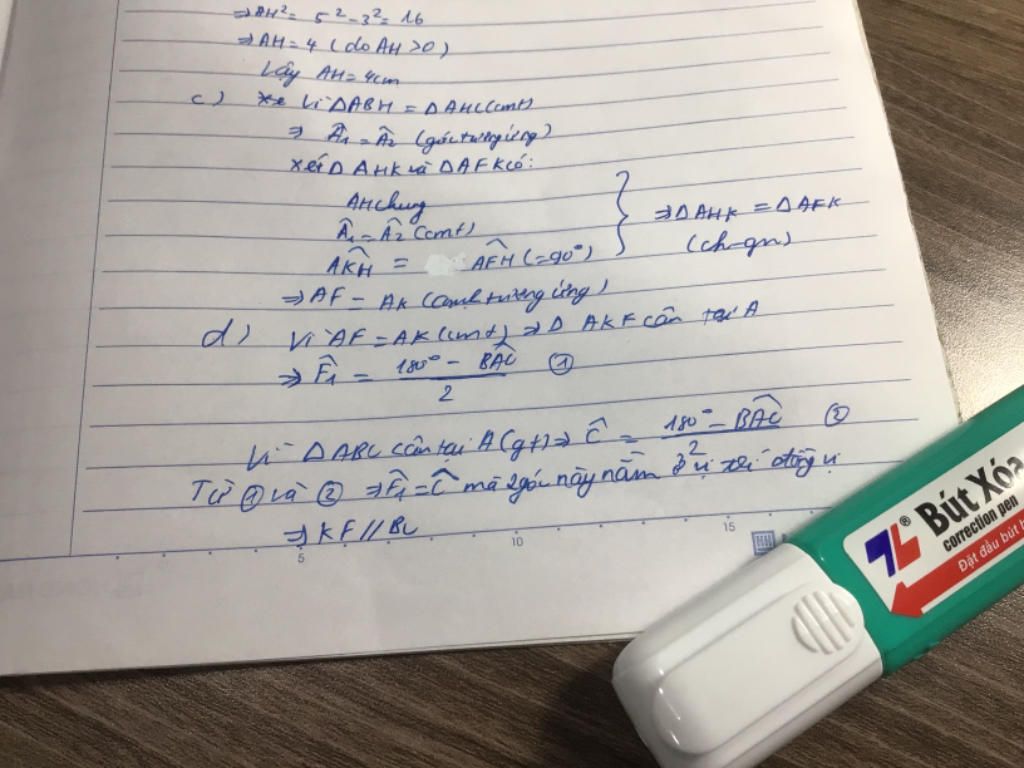 ⇒AH² = 5² - 3² = 16
⇒AH = 4 ( do AH > 0 )
Vậy AH = 4cm
c) Vì ΔABH = ΔAHC (cmt)
⇒ Â₁ = Â₂ (góc tương ứng)
xét Δ AHK và ΔAFK có:
AH chung
Â₁ = Â₂ (cmt)
⇒Δ AHK = ΔAFK
AKH = AFH (= 90°)
(ch-gn)
⇒ AF = AK (cạnh tương ứng)
d) Vì AF = AK (cmt) ⇒ Δ AKF cân tại A
⇒ F̂₁ = (180° - BAC)/2 ①
Vì ΔABC cân tại A (gt) ⇒ Ĉ = (180° - BAC)/2 ②
Từ ① và ② ⇒ F̂₁ = Ĉ mà 2 góc này nằm ở vị trí đồng vị
⇒ KF // BC
5 10 15
Bút Xóa
correction pen
Đặt đầu bút